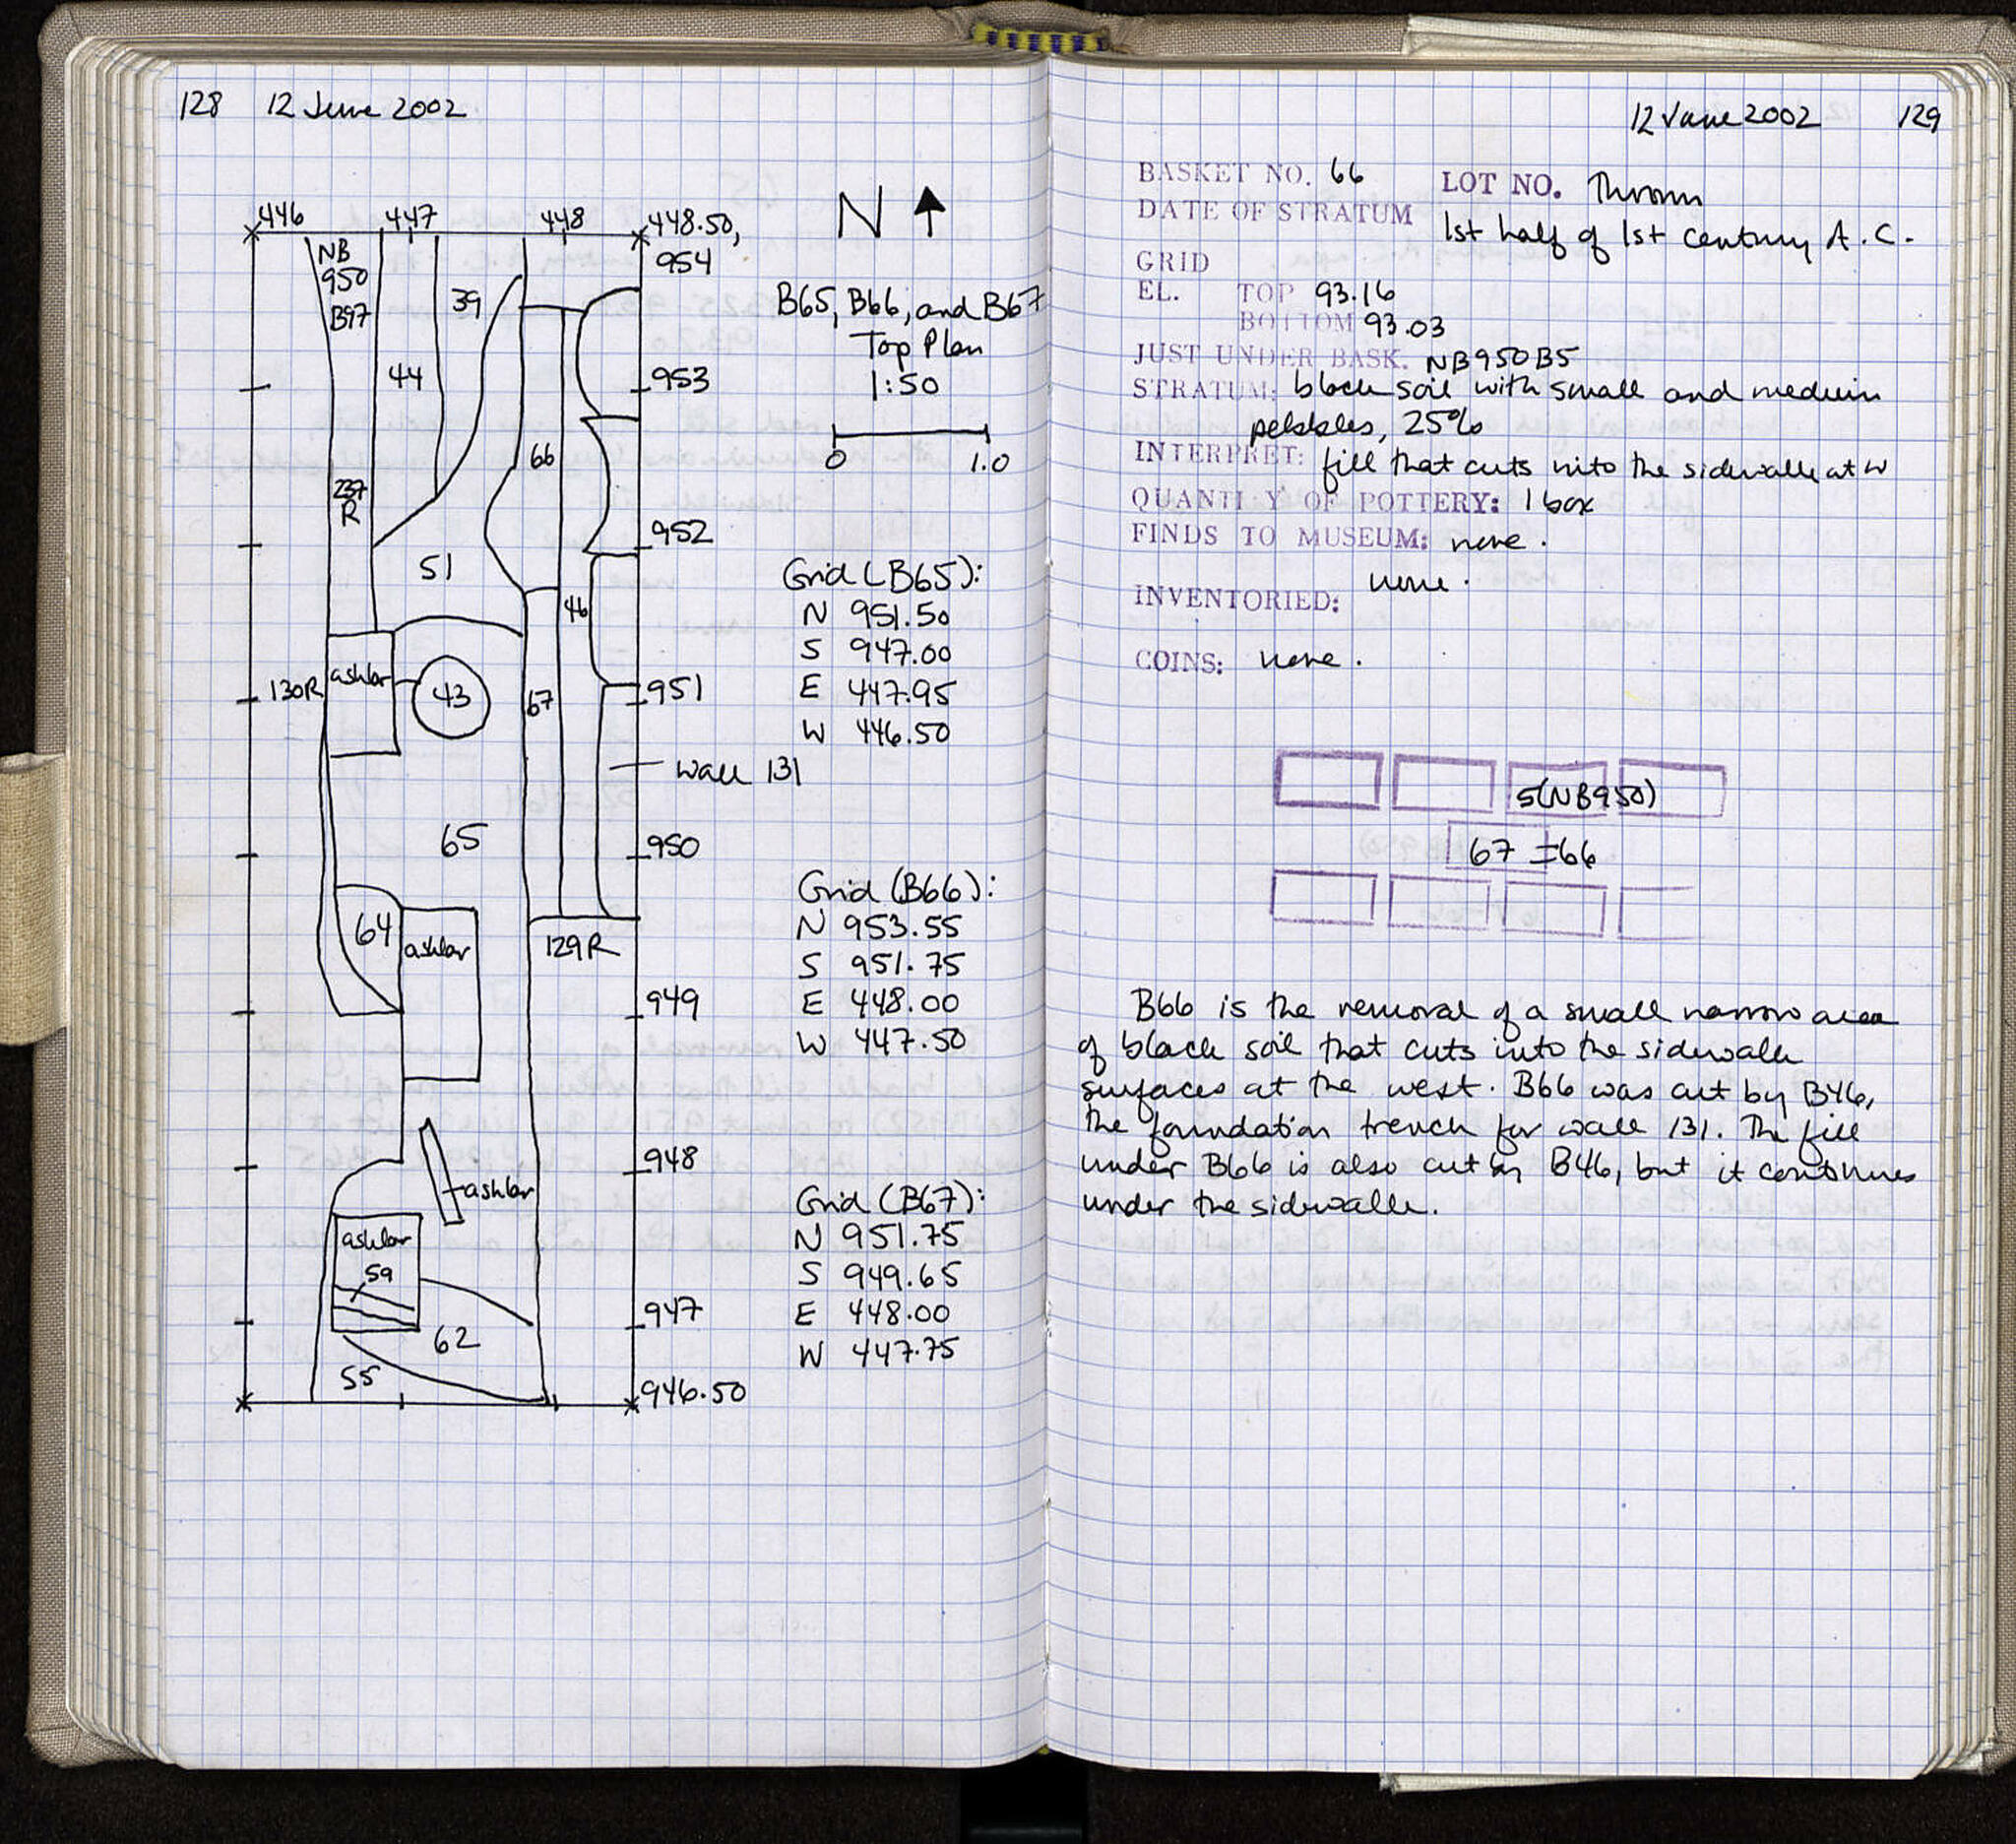 128 12 June 2002
446 447 448 448.50,
954
N
NB
950
B97
39
B65, B66, and B67
Top Plan
1:50
44
953
0 1.0
66
237
R
952
51
Grid (B65):
N 951.50
S 947.00
E 447.95
W 446.50
46
ashlar
130R
43
67
951
wall 131
65
950
Grid (B66):
N 953.55
S 951.75
E 448.00
W 447.50
64
ashlar
129R
949
948
ashlar
Grid (B67):
N 951.75
S 949.65
E 448.00
W 447.75
ashlar
59
947
62
55
946.50
12 June 2002 129
BASKET NO. 66 LOT NO. Thrown
DATE OF STRATUM 1st half of 1st century A.C.
GRID
EL. TOP 93.16
BOTTOM 93.03
JUST UNDER BASK. NB950B5
STRATUM: black soil with small and medium
pebbles, 25%
INTERPRET: fill that cuts into the sidewalk at W
QUANTI Y OF POTTERY: 1 box
FINDS TO MUSEUM: none.
INVENTORIED: none.
COINS: none.
5(NB950)
67 =66
B66 is the removal of a small narrow area
of black soil that cuts into the sidewalk
surfaces at the west. B66 was cut by B46,
the foundation trench for wall 131. The fill
under B66 is also cut by B46, but it continues
under the sidewalk.